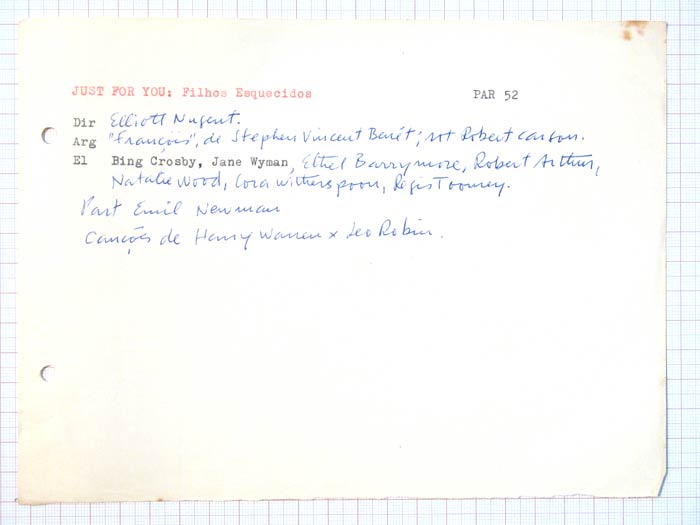 JUST FOR YOU: Filhos Esquecidos PAR 52
Dir Elliott Nugent.
Arg "Françóis", de Stephen Vincent Benét; rot Robert Carson.
El Bing Crosby, Jane Wyman, Ethel Barrymore, Robert Arthur,
Natalie Wood, Cora Witherspoon, Régis Toomey.
Part Emil Newman
Canções de Harry Warren x Leo Robin.